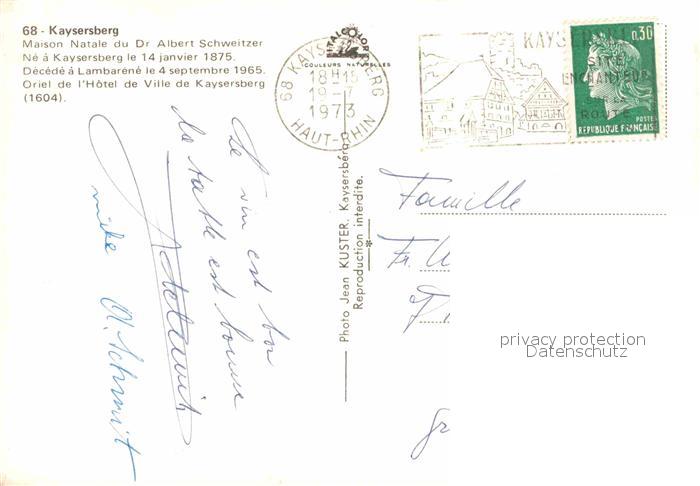 68 - Kaysersberg
Maison Natale du Dr Albert Schweitzer
Né à Kaysersberg le 14 janvier 1875.
Décédé à Lambaréné le 4 septembre 1965.
Oriel de l'Hôtel de Ville de Kaysersberg
(1604).
ITALCOLOR
COULEURS NATURELLES
68 KAYSERSBERG
18H15
19-
1973
HAUT-RHIN
KAYSERSBERG
SITE
ENCHANTEUR
SUR LA
ROUTE
0,30
POSTES
REPUBLIQUE FRANÇAISE
Le vin est bon
la table est bonne
A. Schmit
Photo Jean KUSTER, Kaysersberg
Reproduction interdite.
Famille
Fr.
privacy protection
Datenschutz